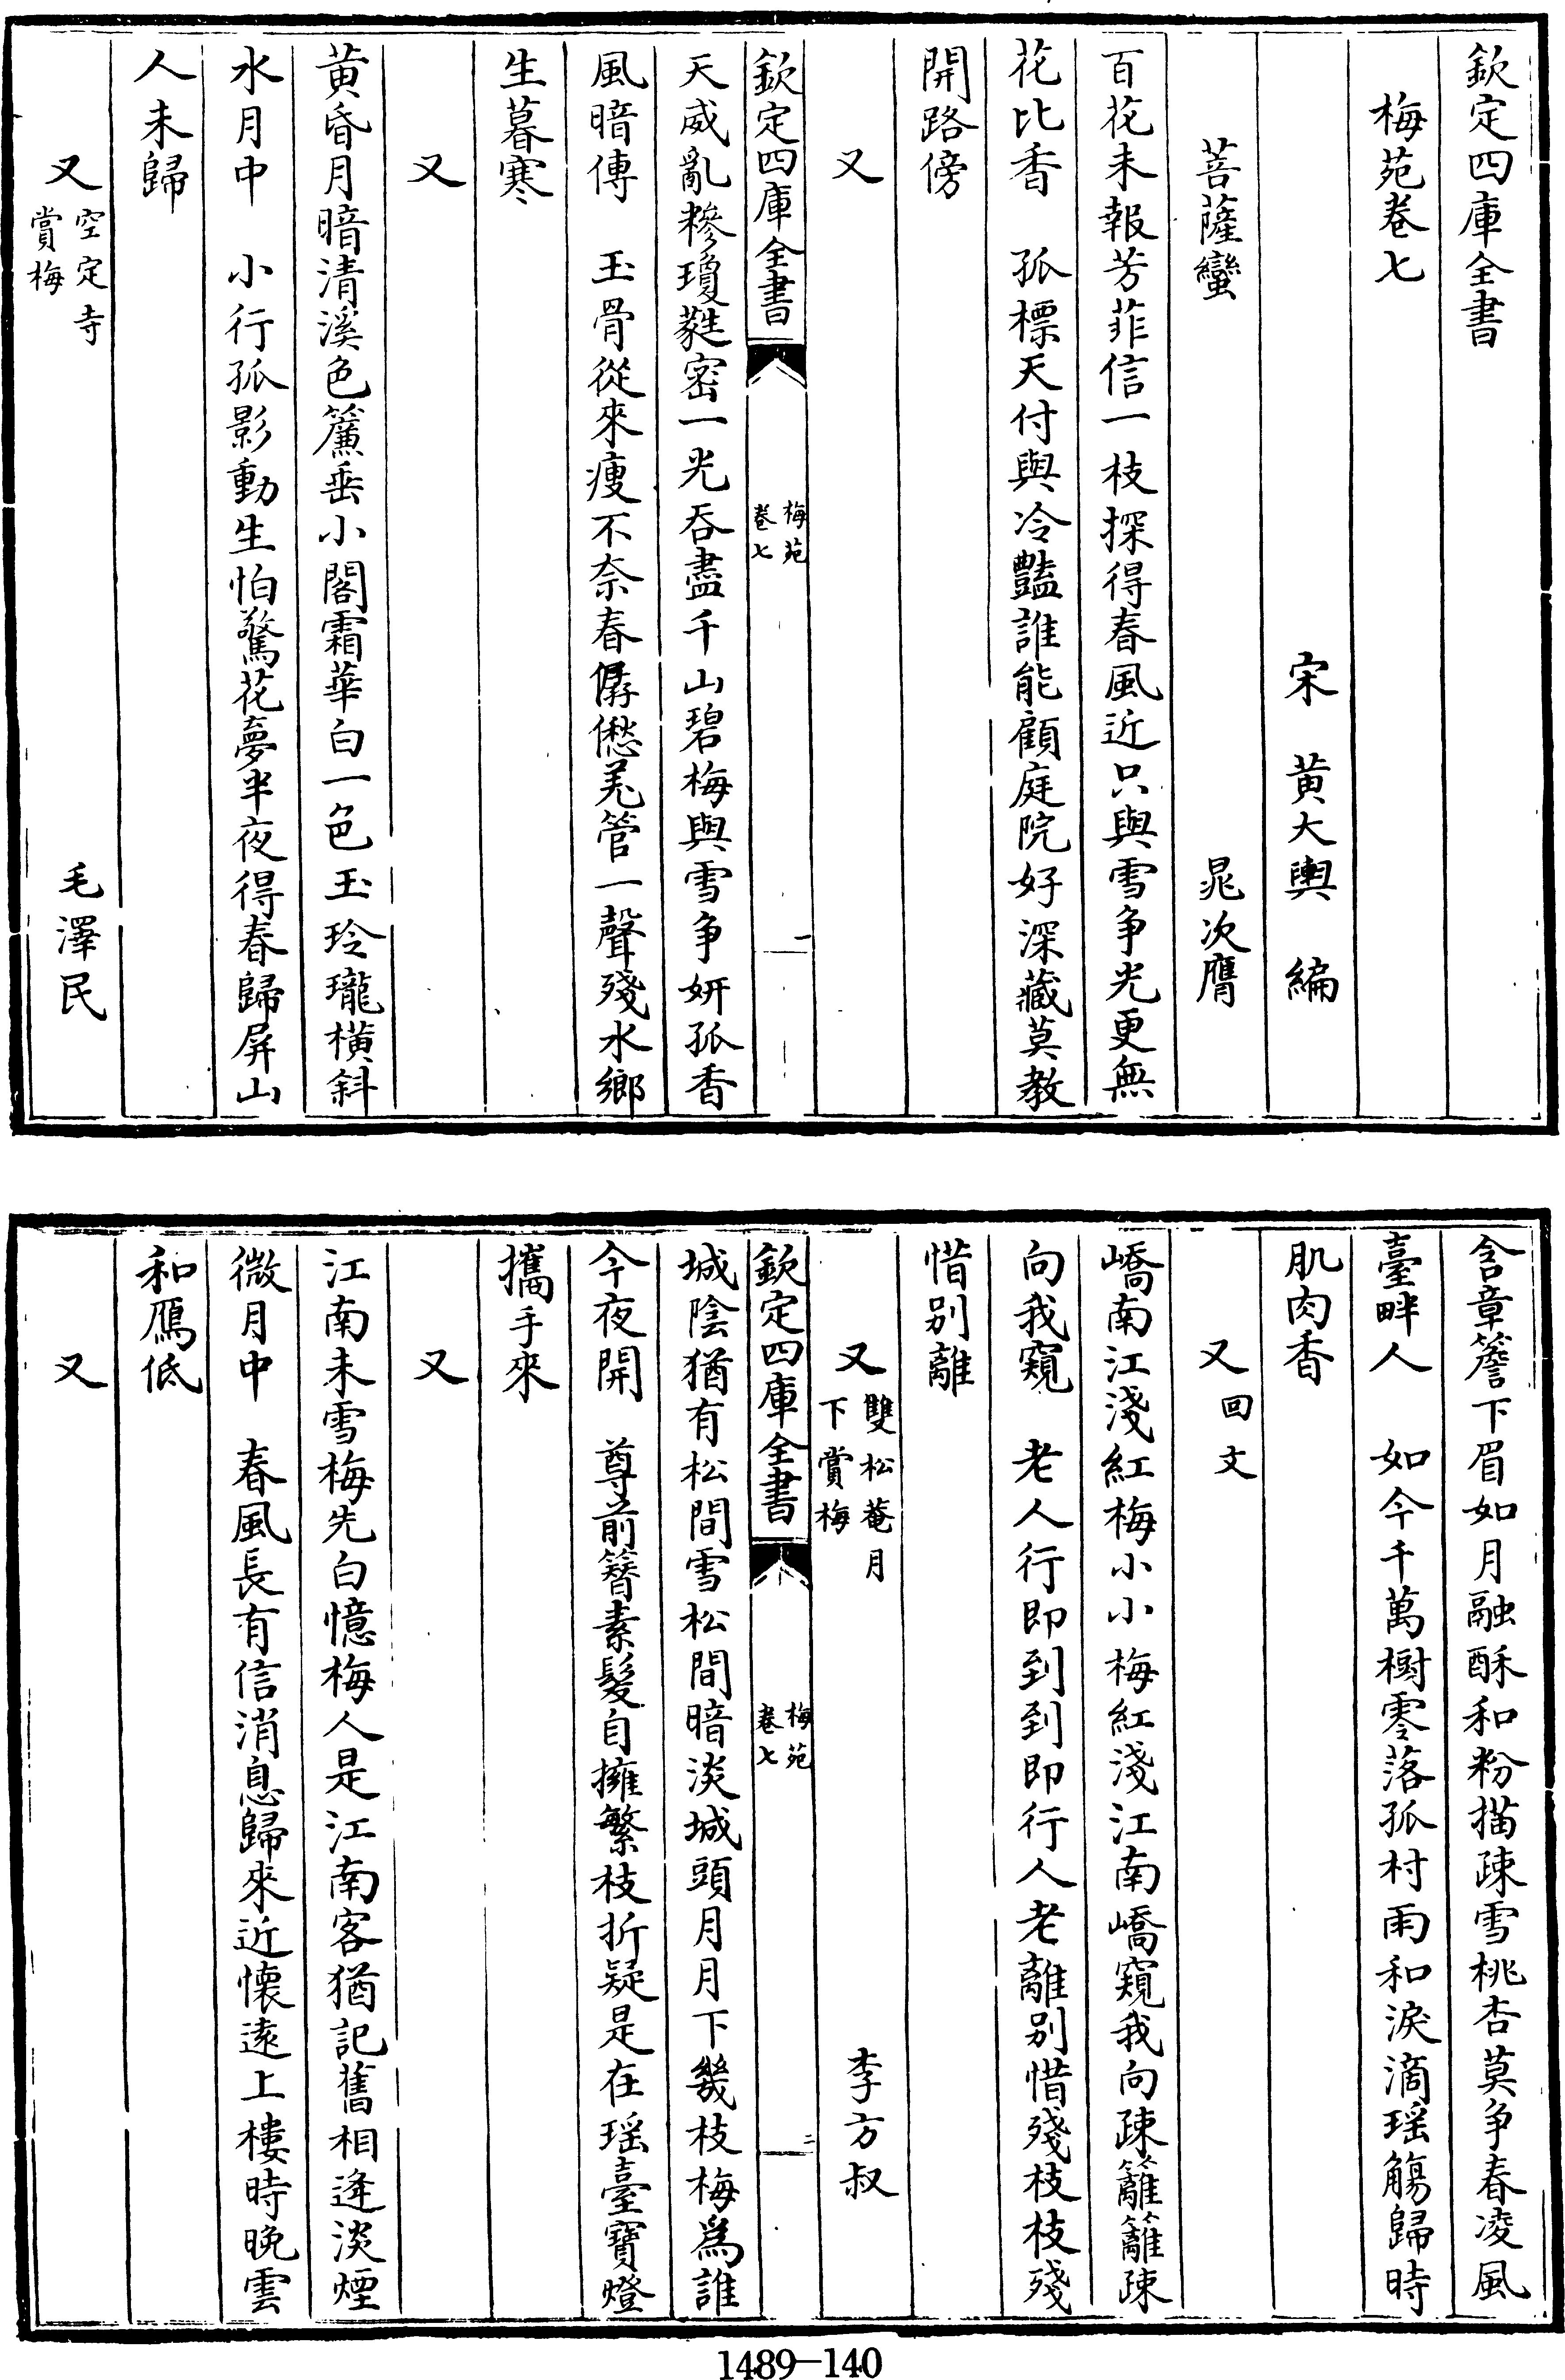 欽定四庫全書
梅苑卷七
宋　黃大輿　編
菩薩蠻　晁次膺
百花未報芳菲信一枝探得春風近只與雪争光更無
花比香　孤標天付與冷豔誰能顧庭院好深藏莫教
開路傍
又
欽定四庫全書
梅苑
卷七
一
天威亂糝瓊蕤密一光吞盡千山碧梅與雪争妍孤香
風暗傳　玉骨從來瘦不奈春僝僽羌管一聲殘水鄉
生暮寒
又
黃昏月暗清溪色簾垂小閣霜華白一色玉玲瓏橫斜
水月中　小行孤影動生怕驚花夢半夜得春歸屏山
人未歸
又　空定寺
賞梅　毛澤民
含章簷下眉如月融酥和粉描疎雪桃杏莫争春凌風
臺畔人　如今千萬樹零落孤村雨和淚滴瑶觴歸時
肌肉香
又　回文
嶠南江淺紅梅小小梅紅淺江南嶠窺我向疎籬籬疎
向我窺　老人行即到到即行人老離别惜殘枝枝殘
惜别離
又　雙松菴月
下賞梅　李方叔
欽定四庫全書
梅苑
卷七
二
城陰猶有松間雪松間暗淡城頭月月下幾枝梅為誰
今夜開　尊前簪素髮自擁繁枝折疑是在瑶臺寶燈
攜手來
又
江南未雪梅先白憶梅人是江南客猶記舊相逢淡煙
微月中　春風長有信消息歸來近懷遠上樓時晚雲
和鴈低
又
1489—140